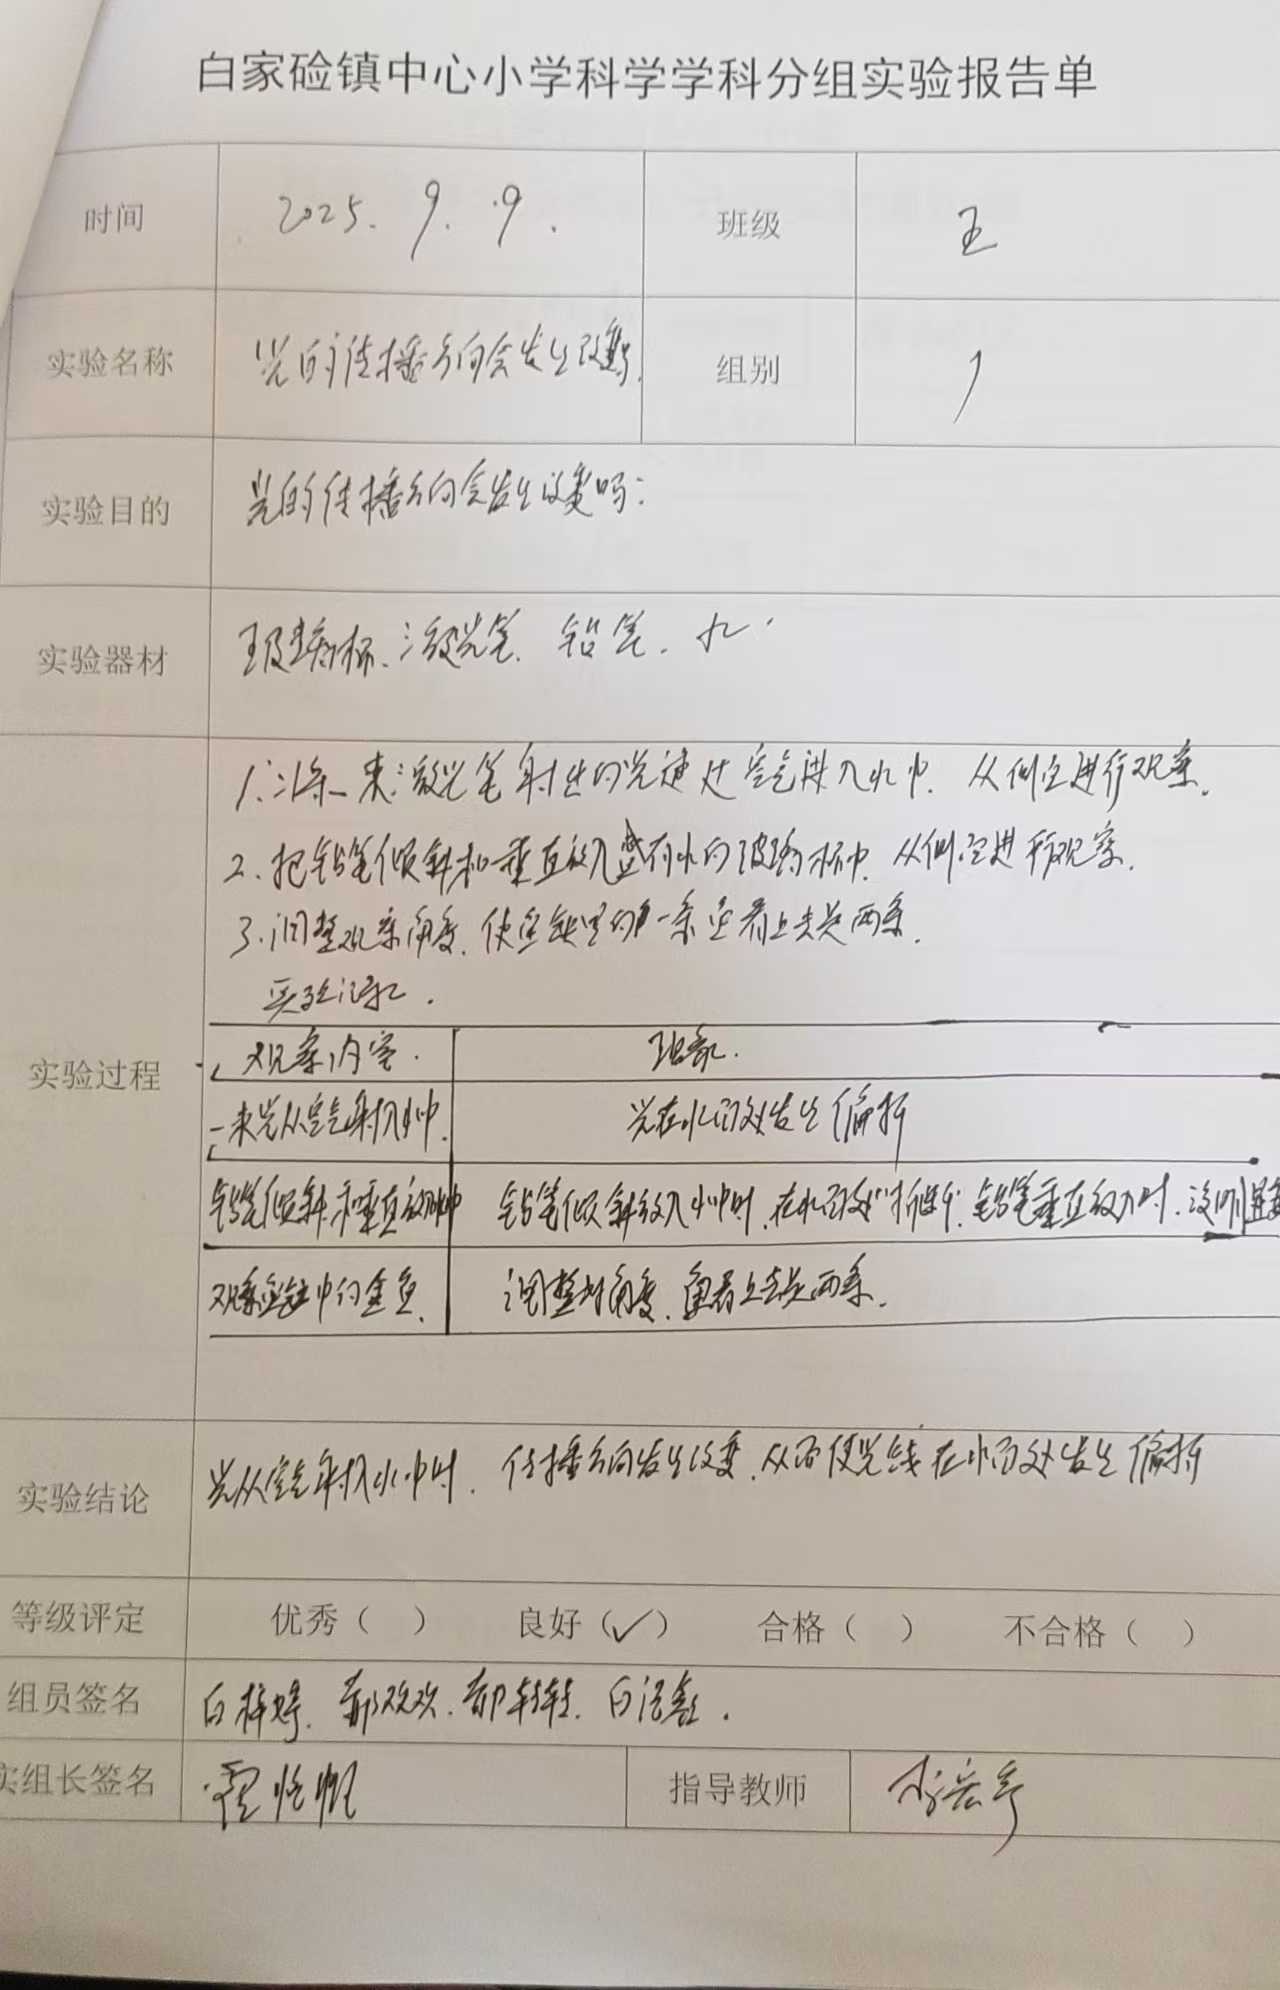 白家硷镇中心小学科学学科分组实验报告单
时间 2025.9.9. 班级 五
实验名称 光的传播方向会发生改变吗 组别 1
实验目的 光的传播方向会发生改变吗?
实验器材 玻璃杯、激光笔、铅笔、水.
实验过程
1.让一束激光笔射出的光通过空气进入水中、从侧面进行观察.
2.把铅笔倾斜和垂直放入盛有水的玻璃杯中、从侧面进行观察.
3.调整观察角度、使鱼缸里的一条鱼看上去是两条.
实验记录.
观察内容. 现象.
一束光从空气射入水中. 光在水面处发生偏折
铅笔倾斜和垂直放入水中 铅笔倾斜放入水中时、在水面处"折断";铅笔垂直放入时、没明显变
观察鱼缸中的金鱼. 调整好角度、鱼看上去是两条.
实验结论 光从空气射入水中时、传播方向发生改变、从而使光线在水面处发生偏折
等级评定 优秀( ) 良好(✓) 合格( ) 不合格( )
组员签名 白梓婷、郝欢欢、白
实组长签名 指导教师 李宏